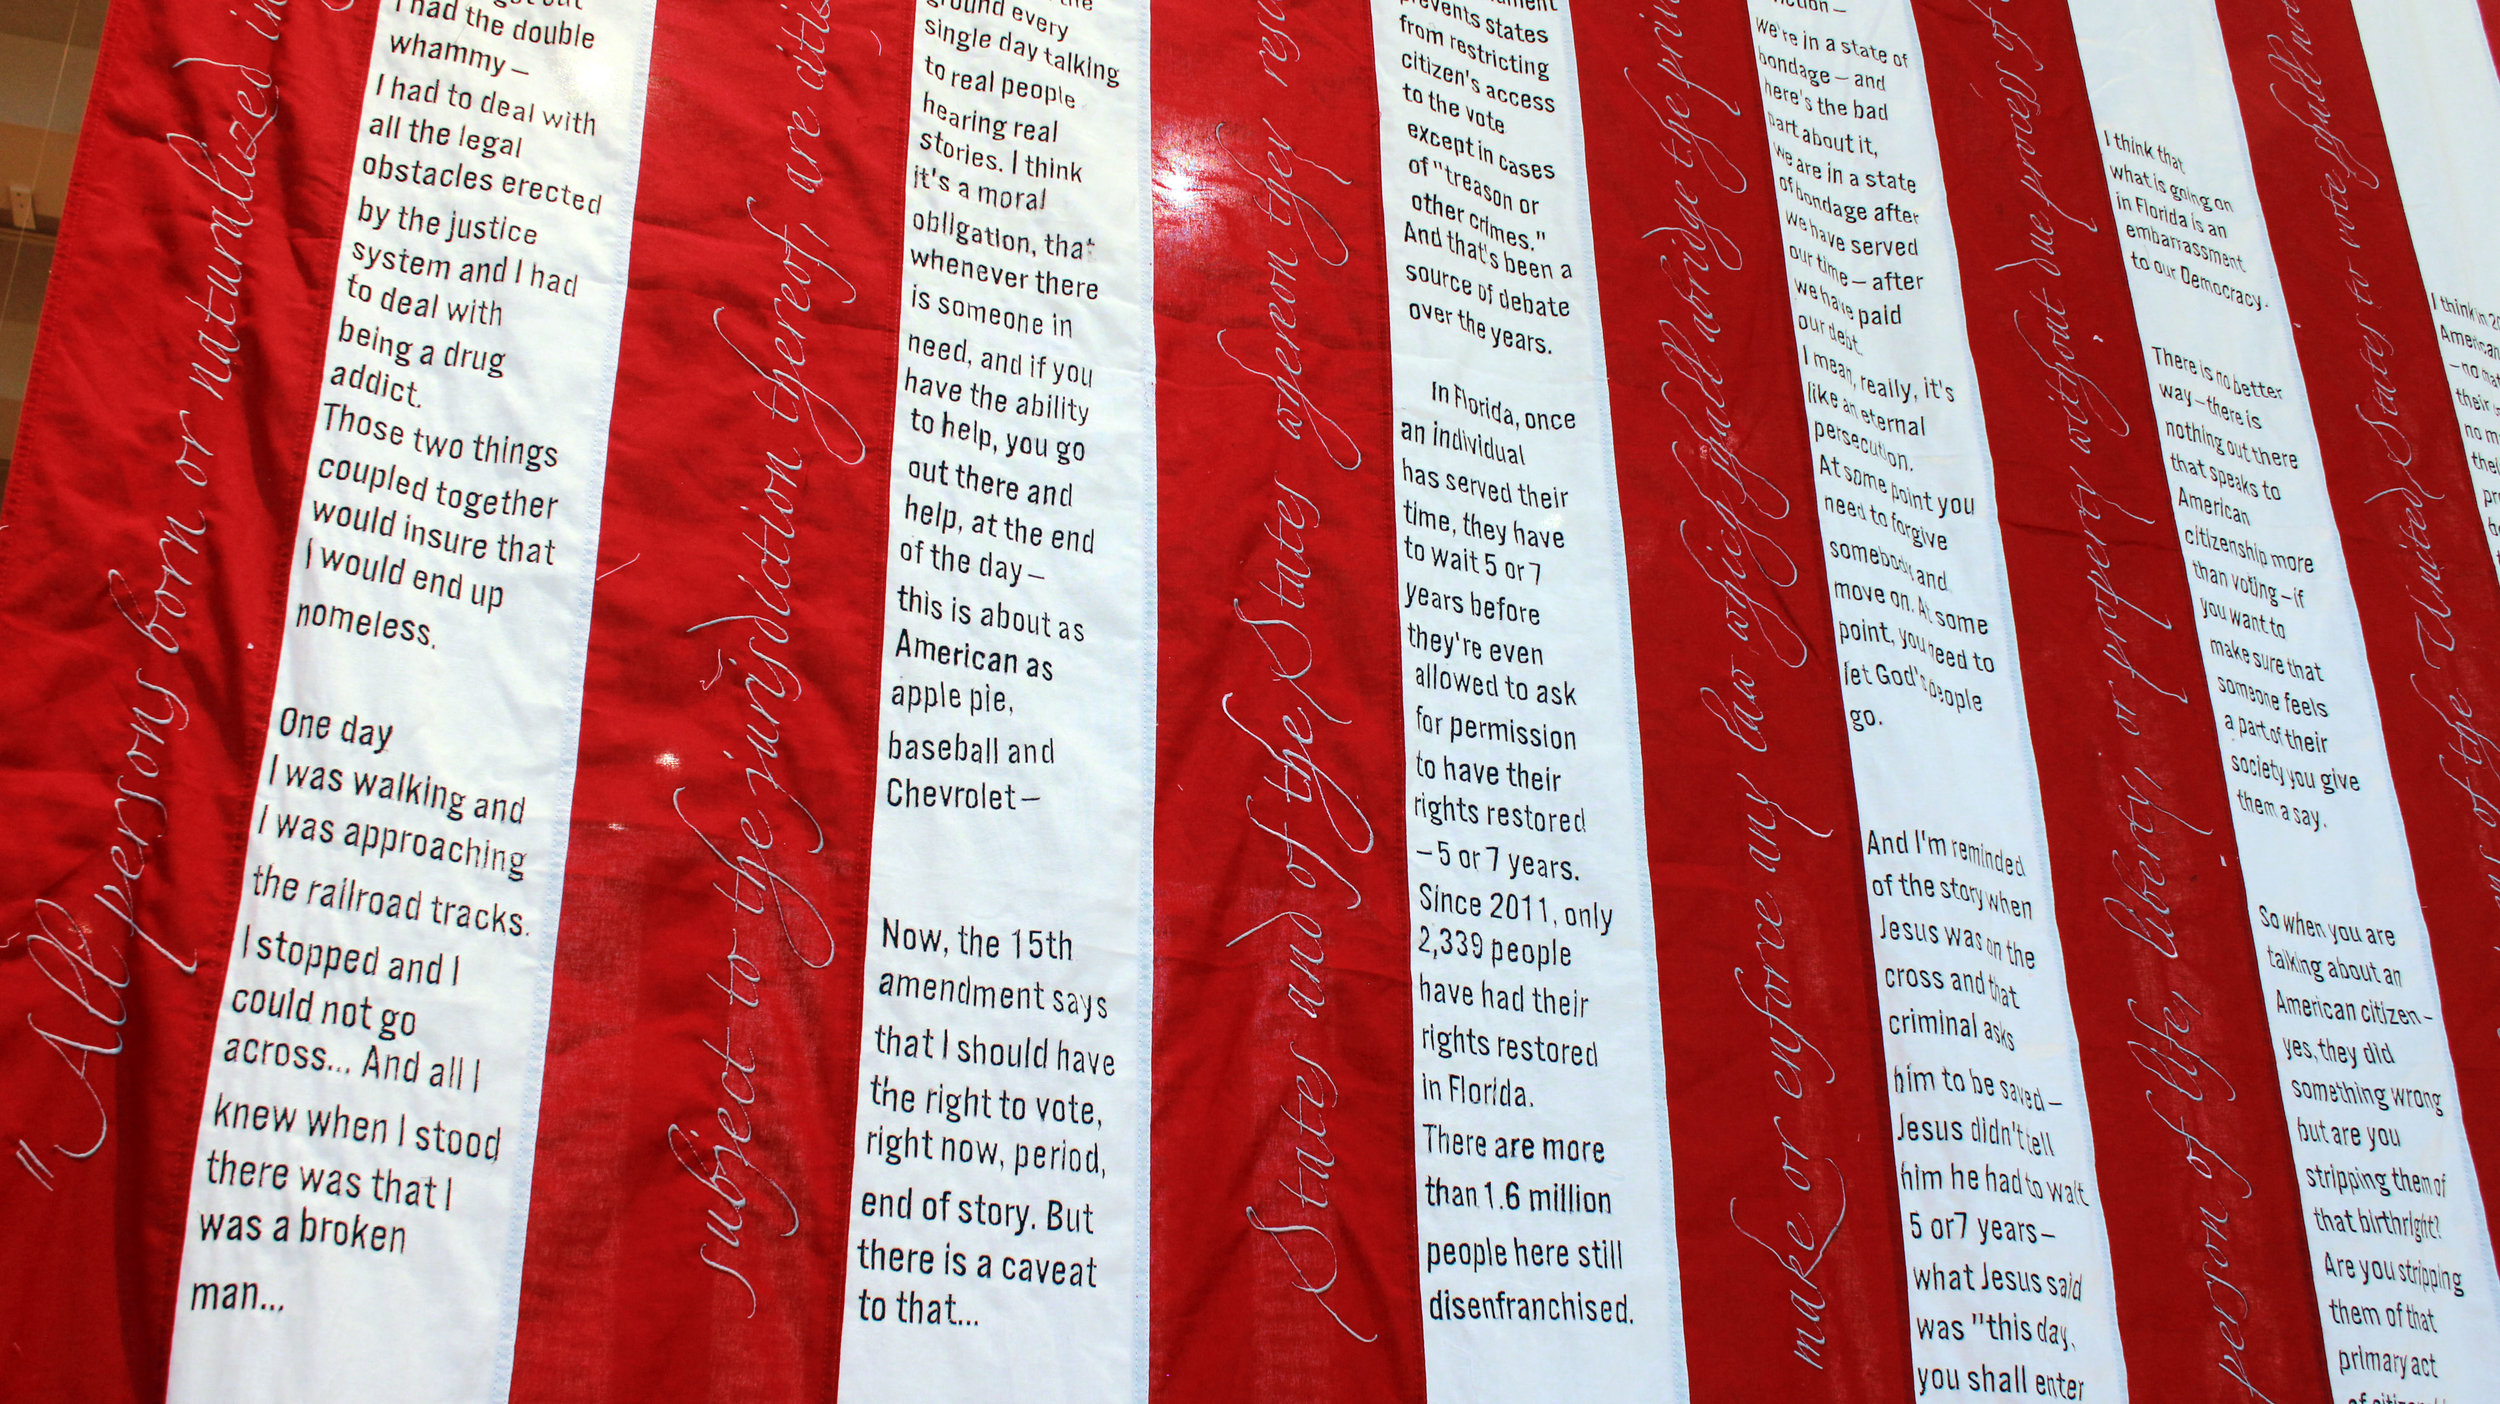 "All persons born or naturalized in
I had the double
whammy –
I had to deal with
all the legal
obstacles erected
by the justice
system and I had
to deal with
being a drug
addict.
Those two things
coupled together
would insure that
I would end up
homeless.
One day
I was walking and
I was approaching
the railroad tracks.
I stopped and I
could not go
across... And all I
knew when I stood
there was that I
was a broken
man...
subject to the jurisdiction thereof, are
ground every
single day talking
to real people
hearing real
stories. I think
it's a moral
obligation, that
whenever there
is someone in
need, and if you
have the ability
to help, you go
out there and
help, at the end
of the day –
this is about as
American as
apple pie,
baseball and
Chevrolet –
Now, the 15th
amendment says
that I should have
the right to vote,
right now, period,
end of story. But
there is a caveat
to that...
States and of the States whereon they
prevents states
from restricting
citizen's access
to the vote
except in cases
of "treason or
other crimes."
And that's been a
source of debate
over the years.
In Florida, once
an individual
has served their
time, they have
to wait 5 or 7
years before
they're even
allowed to ask
for permission
to have their
rights restored
– 5 or 7 years.
Since 2011, only
2,339 people
have had their
rights restored
in Florida.
There are more
than 1.6 million
people here still
disenfranchised.
make or enforce any law which shall abridge the
we're in a state of
bondage – and
here's the bad
part about it,
we are in a state
of bondage after
we have served
our time – after
we have paid
our debt.
I mean, really, it's
like an eternal
persecution.
At some point you
need to forgive
somebody and
move on. At some
point, you need to
let God's people
go.
And I'm reminded
of the story when
Jesus was on the
cross and that
criminal asks
him to be saved –
Jesus didn't tell
him he had to wait
5 or 7 years –
what Jesus said
was "this day,
you shall enter
person of life, liberty, or property without due process of
I think that
what is going on
in Florida is an
embarrassment
to our Democracy.
There is no better
way – there is
nothing out there
that speaks to
American
citizenship more
than voting – if
you want to
make sure that
someone feels
a part of their
society you give
them a say.
So when you are
talking about an
American citizen –
yes, they did
something wrong
but are you
stripping them of
that birthright?
Are you stripping
them of that
primary act
of the United States to vote shall not
I think in
American
their
no